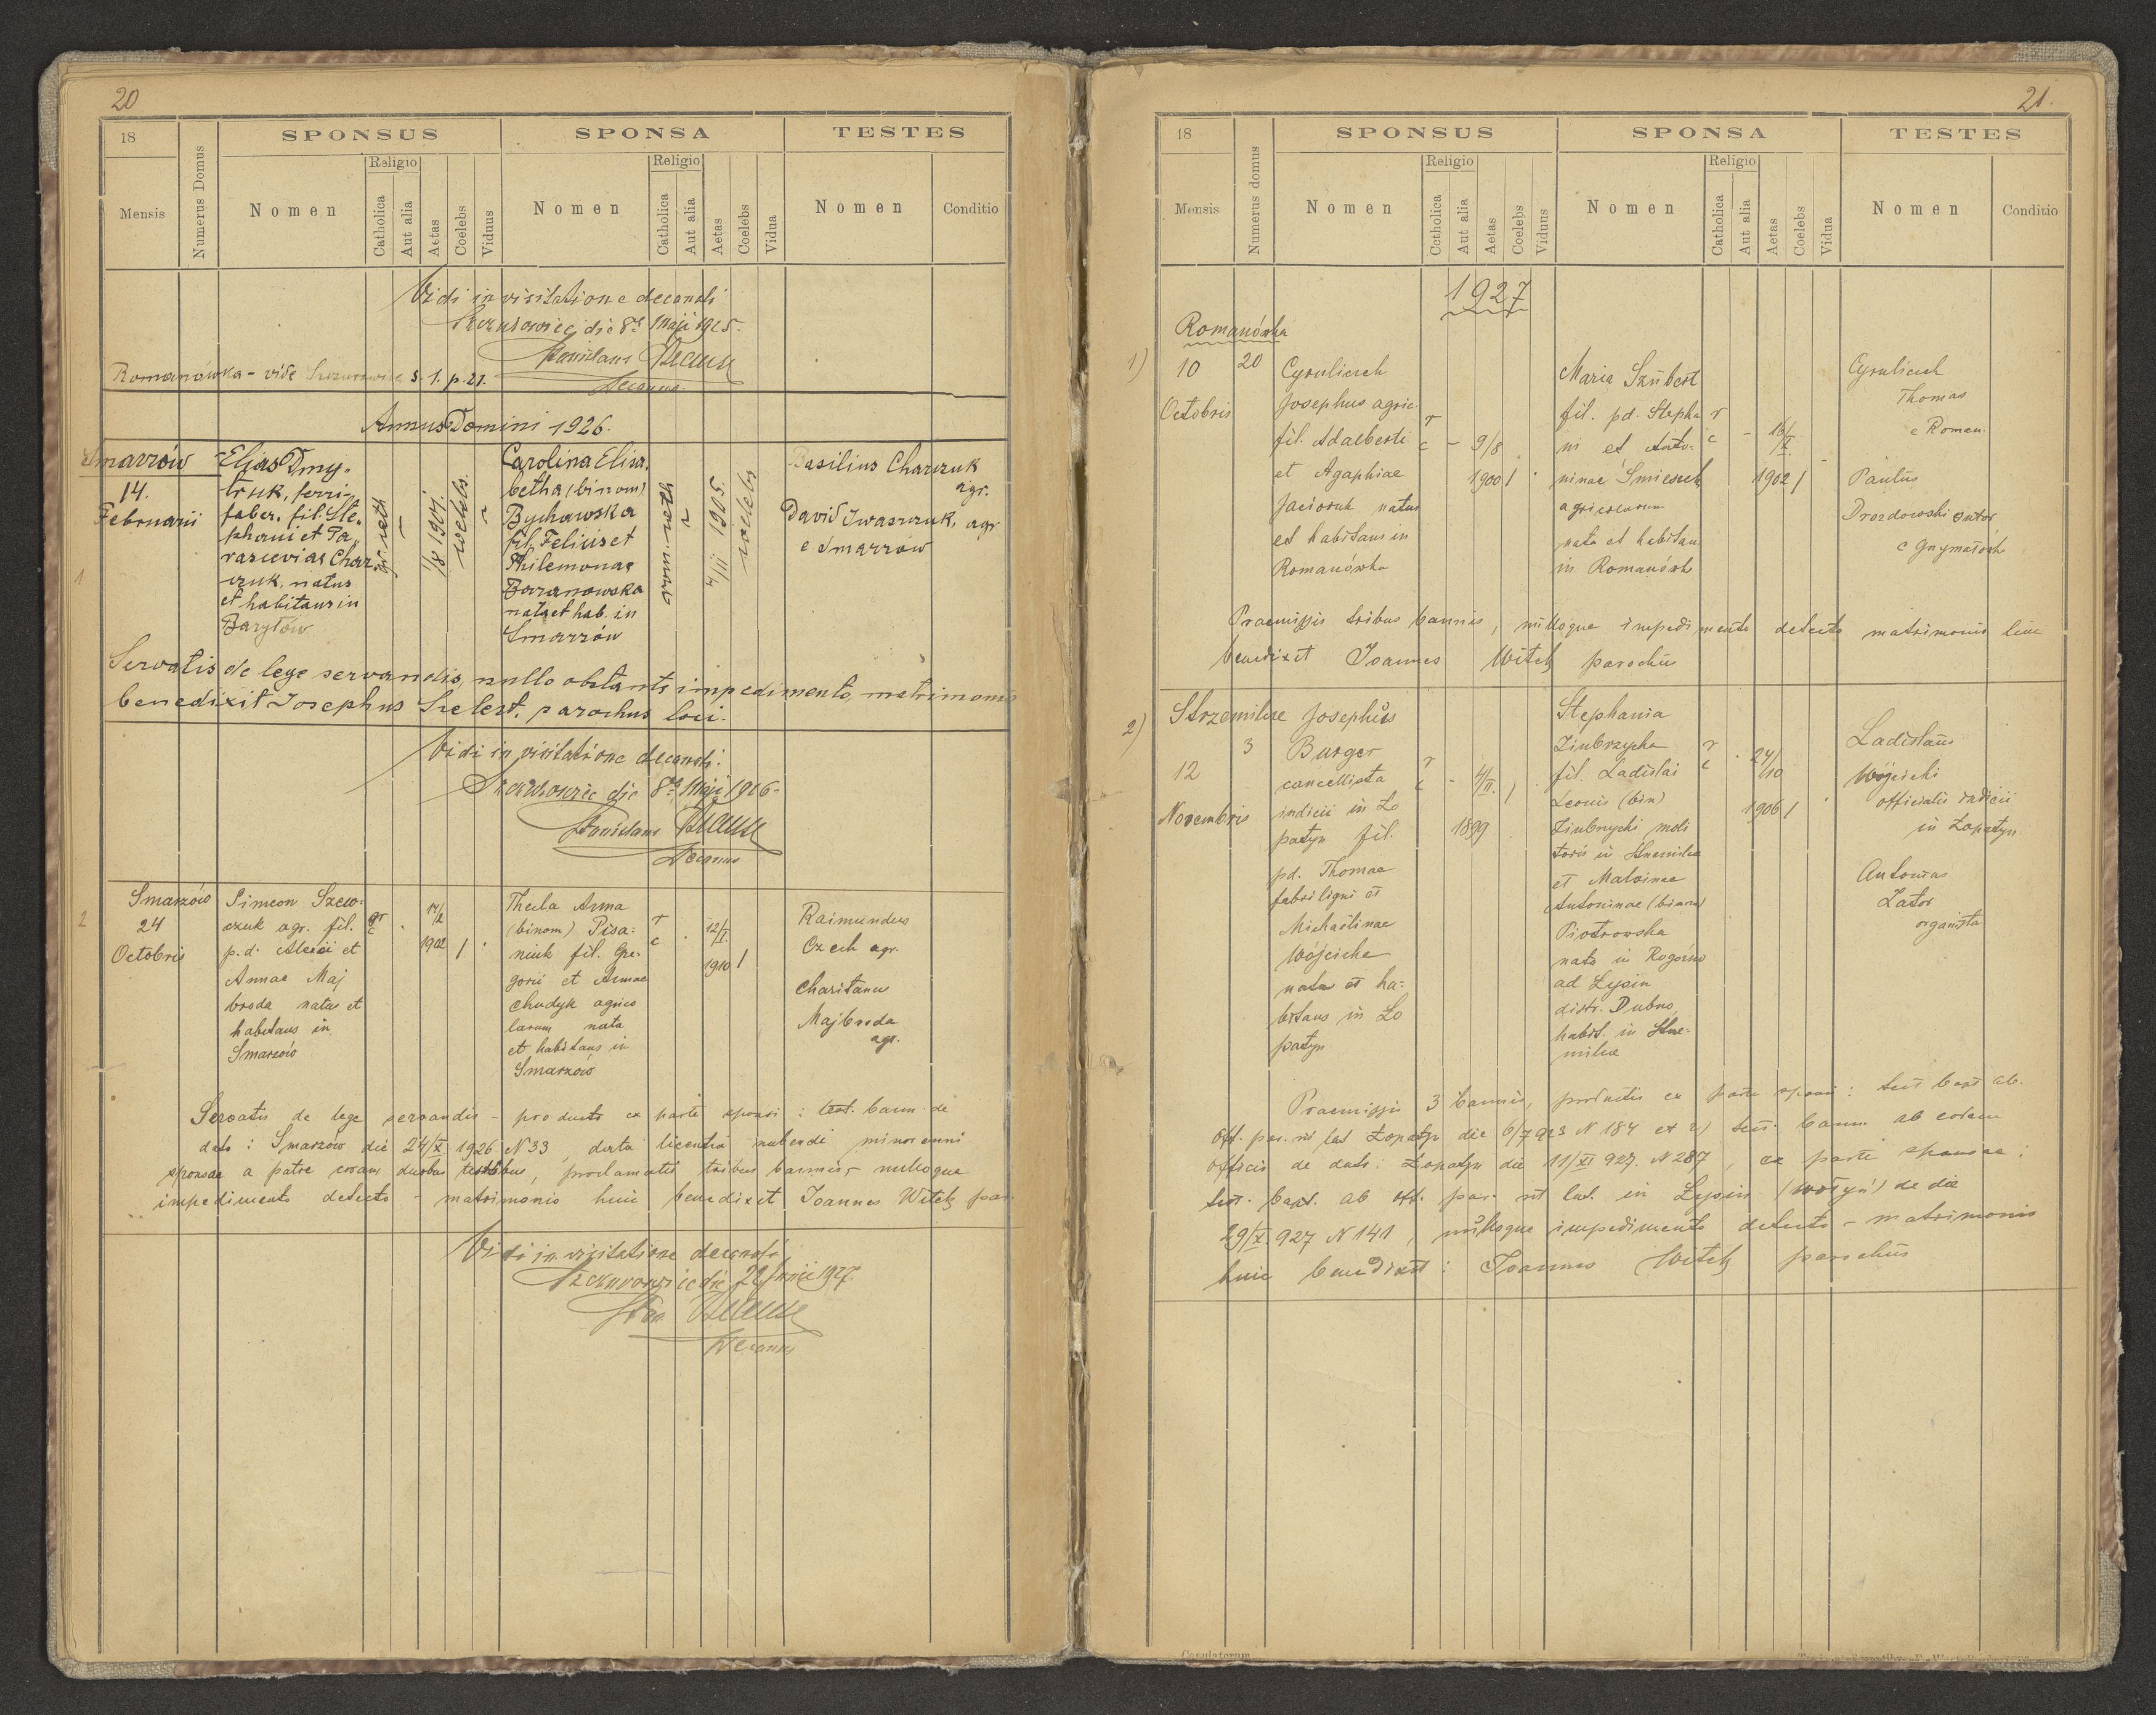 20
18
SPONSUS
SPONSA
TESTES
Mensis
Numerus Domus
Nomen
Religio
Catholica
Aut alia
Aetas
Coelebs
Viduus
Nomen
Religio
Catholica
Aut alia
Aetas
Coelebs
Vidua
Nomen
Conditio
Vidi in visitatione decanali
die 8ª Maji 1925.
Stanislaus
Decanus
Romanówka - vide s. 1. p. 21.
Annus Domini 1926.
1
Smarzów
14.
Februarii
Elias Dmy-
truk, ferri-
faber, fil. Ste-
phani et Pa-
rasceviae Char-
czuk, natus
et habitans in
Barylów
gr. cath
1/8 1901.
coelebs.
Carolina Elisa-
betha (binom)
Bychawska
fil. Felicis et
Philemonae
Baranowska
nata et hab. in
Smarzów
rom.-cath
4/III 1905.
coelebs
Basilius Charczuk
agr.
David Iwaszczuk, agr
e Smarzów
Servatis de lege servandis, nullo obstante impedimento, matrimonio
benedixit Josephus Szelest, parochus loci.
Vidi in visitatione decanali.
die 8ª Maji 1926.
Stanislaus
Decanus
2
Smarzów
24
Octobris
Simeon Szew-
czuk agr. fil.
p.d. Alexii et
Annae Maj
broda natus et
habitans in
Smarzów
gr
c
14/2
1902
Thecla Anna
(binom) Pisa-
niuk fil. Gre-
gorii et Annae
Chudyk agrico
larum nata
et habitans in
Smarzów
r
c
12/I.
1910
Raimundus
Czech agr.
Charitanus
Majbroda
agr.
Servatis de lege servandis - producto ex parte sponsi : test. bann. de
dato : Smarzów die 24/X 1926 N 33, data licentia nubendi minorenni
sponsae a patre coram duobus testibus, proclamatis tribus bannis, nulloque
impedimento detecto - matrimonio huic benedixit Joannes Witek par.
Vidi in visitatione decanali
die 22 Junii 1927.
Stan
Decanus
21.
18
SPONSUS
SPONSA
TESTES
Mensis
Numerus domus
Nomen
Religio
Catholica
Aut alia
Aetas
Coelebs
Viduus
Nomen
Religio
Catholica
Aut alia
Aetas
Coelebs
Vidua
Nomen
Conditio
1927
Romanówka
1)
10
Octobris
20
Cyruliczek
Josephus agric.
fil. Adalberti
et Agaphiae
Jaciorsk natus
et habitans in
Romanówka
r
c
9/8
1900
Maria Szubert
fil. pd. Stepha
ni et Anto-
ninae Smieszek
agricolarum
nata et habitan
in Romanówk
r
c
16/X.
1902
Cyruliczek
Thomas
e Roman.
Paulus
Drozdowski sutor
e
Praemissis tribus bannis, nulloque impedimento detecto matrimonio huic
benedixit Joannes Witek parochus
2)
Strzemilcze
3
12
Novembris
Josephus
Burger
cancellista
iudicii in Ło
patyn fil.
pd. Thomae
fabri ligni et
Michaëlinae
Wójcicka
natus et ha-
bitans in Ło
patyn
r
c
4/II.
1899
Stephania
Ziubrzycka
fil. Ladislai
Leonis (bin)
Ziubrzycki moli
toris in
et Malvinae
Antoninae (binom)
Piotrowska
nata in Rogoźno
ad Łysin
distr. Dubno,
habit. in Strze-
milcze
r
c
24/10
1906
Ladislaus
Wójcicki
officialis iudicii
in Łopatyn
Antonius
Zator
organista
Praemissis 3 bannis, productis ex parte sponsi : test. bapt ab.
off. par. rit lat Łopatyn die 6/7 923 N 184 et 2) test. bann. ab eodem
officio de dato : Łopatyn die 11/XI 927. N 287, ex parte sponsae :
test. bapt. ab off. par. rit lat. in Łysin (Wołyń) de die
29/X. 927 N 141, nulloque impedimento detecto - matrimonio
huic benedixit : Joannes Witek parochus
Copulatorum